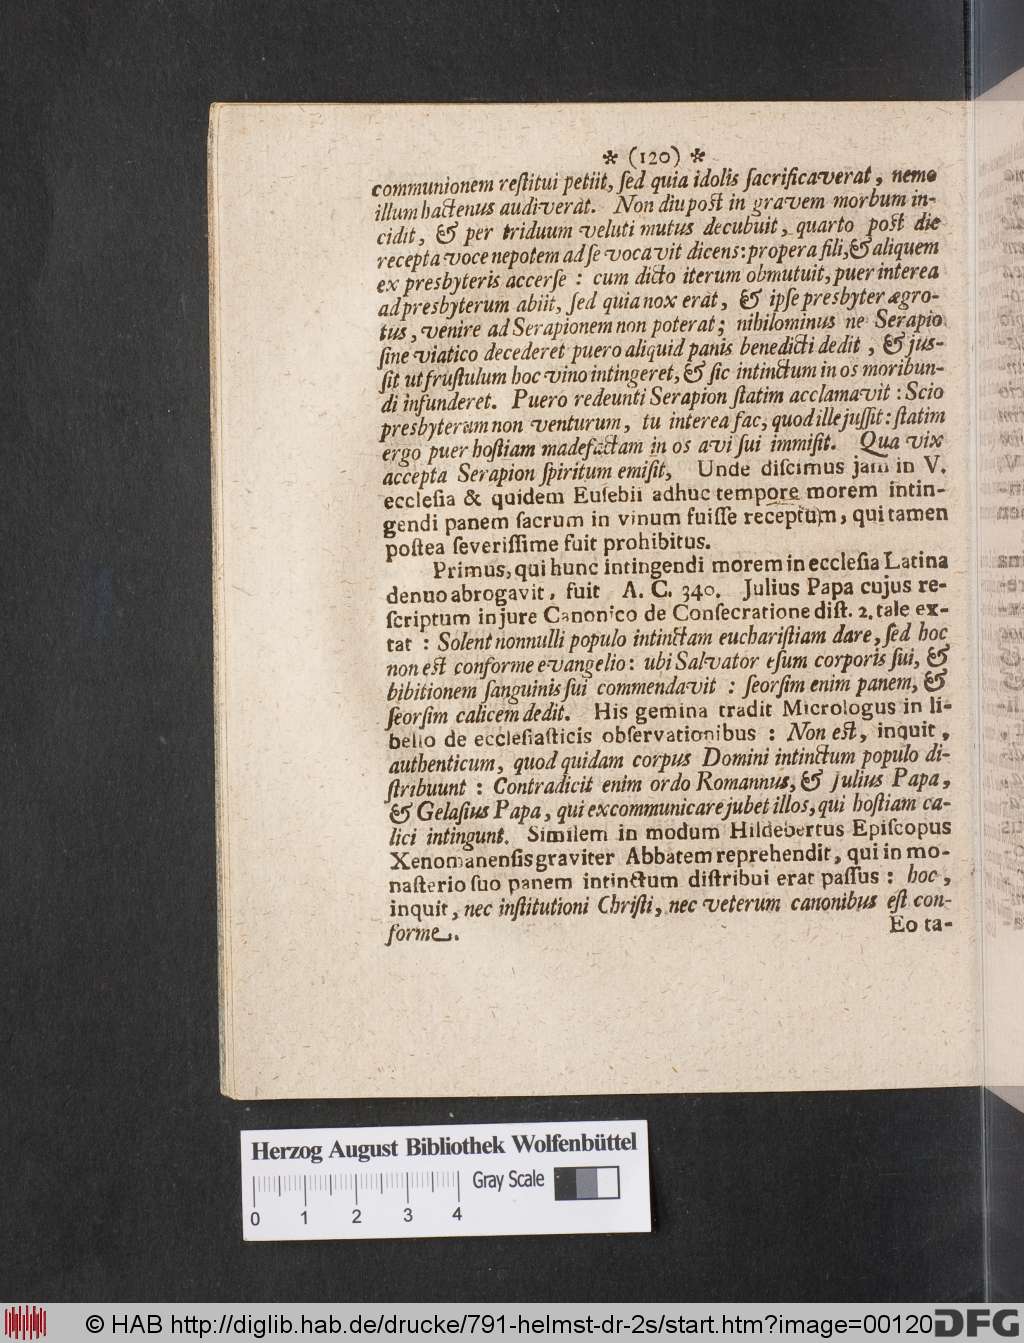 * (120) *
communionem reſtitui petiit, ſed quia idolis ſacrificaverat, nemo
illum hactenus audiverat. Non diu post in gravem morbum in-
cidit, & per triduum veluti mutus decubuit, quarto post die
recepta voce nepotem ad ſe vocavit dicens: propera fili, & aliquem
ex presbyteris accerſe : cum dicto iterum obmutuit, puer interea
ad presbyterum abiit, ſed quia nox erat, & ipſe presbyter ægro-
tus, venire ad Serapionem non poterat; nihilominus ne Serapio
ſine viatico decederet puero aliquid panis benedicti dedit, & juſ-
ſit ut fruſtulum hoc vino intingeret, & ſic intinctum in os moribun-
di infunderet. Puero redeunti Serapion ſtatim acclamavit : Scio
presbyterum non venturum, tu interea fac, quod ille juſſit: ſtatim
ergo puer hoſtiam madefactam in os avi ſui immiſit. Qua vix
accepta Serapion ſpiritum emiſit, Unde diſcimus jam in V.
eccleſia & quidem Euſebii adhuc tempore morem intin-
gendi panem ſacrum in vinum fuiſſe receptum, qui tamen
poſtea ſeveriſſime fuit prohibitus.
Primus, qui hunc intingendi morem in eccleſia Latina
denuo abrogavit, fuit A. C. 340. Julius Papa cujus re-
ſcriptum in jure Canonico de Conſecratione diſt. 2. tale ex-
tat : Solent nonnulli populo intinctam euchariſtiam dare, ſed hoc
non est conforme evangelio: ubi Salvator eſum corporis ſui, &
bibitionem ſanguinis ſui commendavit : ſeorſim enim panem, &
ſeorſim calicem dedit. His gemina tradit Micrologus in li-
bello de eccleſiaſticis obſervationibus : Non est, inquit,
authenticum, quod quidam corpus Domini intinctum populo di-
ſtribuunt : Contradicit enim ordo Romannus, & Julius Papa,
& Gelaſius Papa, qui excommunicare jubet illos, qui hoſtiam ca-
lici intingunt. Similem in modum Hildebertus Epiſcopus
Xenomanenſis graviter Abbatem reprehendit, qui in mo-
naſterio ſuo panem intinctum diſtribui erat paſſus : hoc,
inquit, nec inſtitutioni Chriſti, nec veterum canonibus eſt con-
forme.
Eo ta-
Herzog August Bibliothek Wolfenbüttel
Gray Scale
0 1 2 3 4
© HAB http://diglib.hab.de/drucke/791-helmst-dr-2s/start.htm?image=00120
DFG